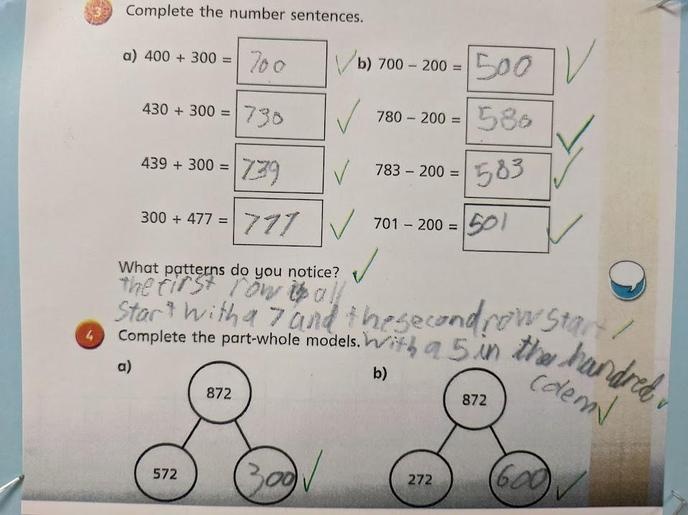 3 Complete the number sentences.
a) 400 + 300 = 700 b) 700 – 200 = 500
430 + 300 = 730 780 – 200 = 580
439 + 300 = 739 783 – 200 = 583
300 + 477 = 777 701 – 200 = 501
What patterns do you notice?
the first row is all
Start with a 7 and the second row Start
with a 5 in the hundred
Colem
4 Complete the part-whole models.
a) b)
872 872
572 300 272 600